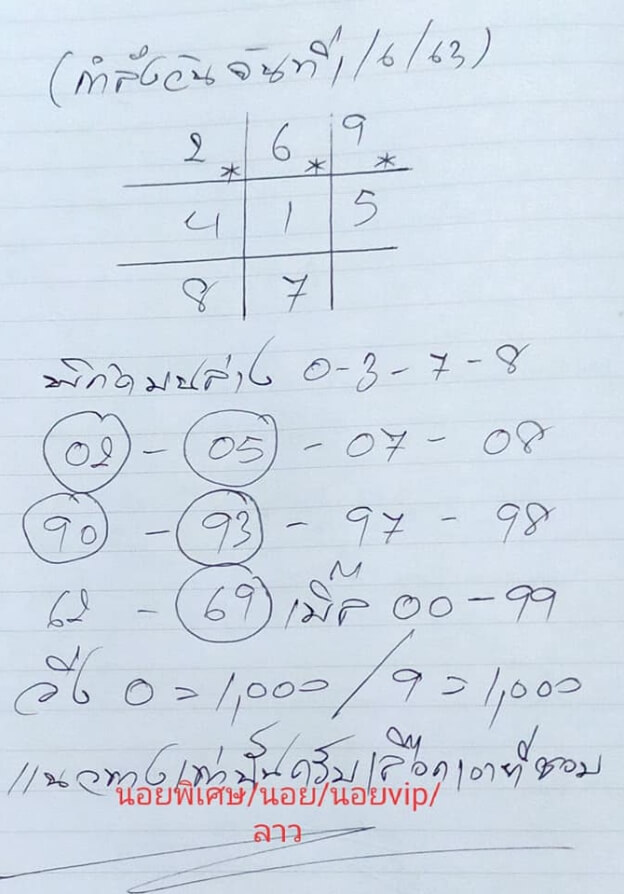 (กำลังวันจันทร์ 1/6/63)
2 * 6 * 9 *
4 1 5
8 7
พิกัดบนล่าง 0-3-7-8
02 - 05 - 07 - 08
90 - 93 - 97 - 98
62 - 69 เบิ้ล 00 - 99
วิ่ง 0 = 1,000 / 9 = 1,000
แนวทางเท่านั้นครับเลือกเอาที่ชอบ
นอยพิเศษ/นอย/นอยvip/
ลาว